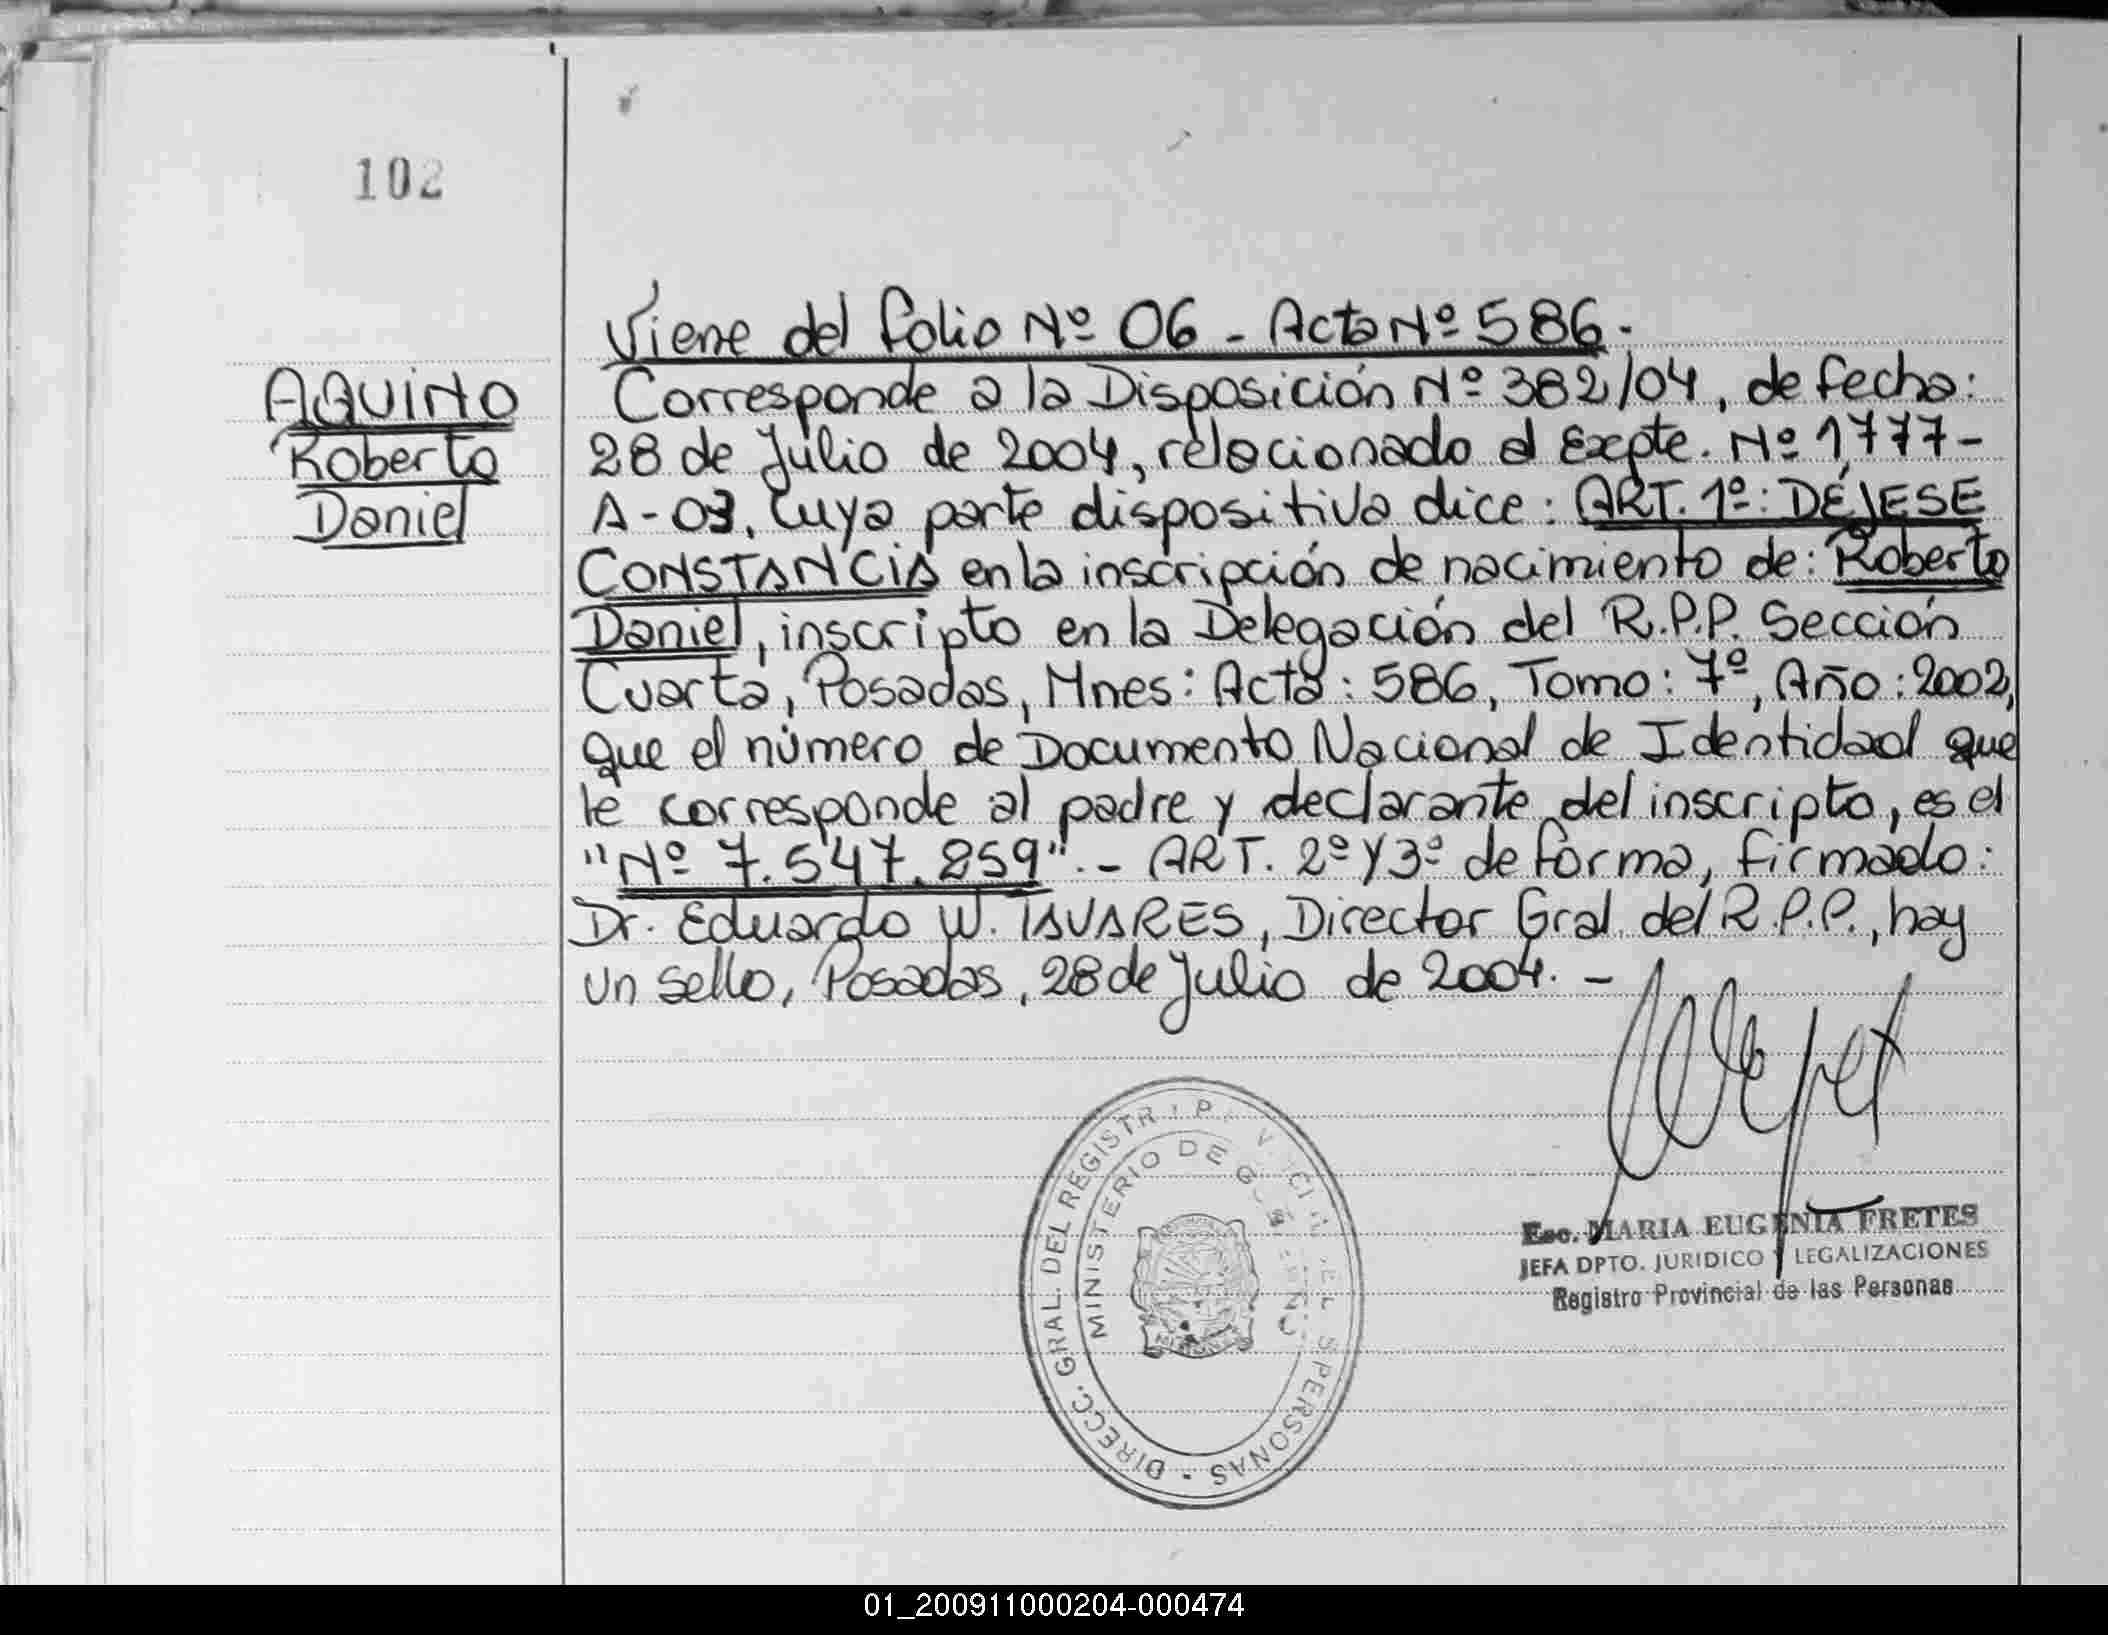 102
Viene del folio Nº 06 - Acta Nº 586.
AQUINO
Roberto
Daniel
Corresponde a la Disposición Nº 382/04, de fecha:
28 de Julio de 2004, relacionado al Expte. Nº 1777-
A-03, cuya parte dispositiva dice: ART. 1º: DÉJESE
CONSTANCIA en la inscripción de nacimiento de: Roberto
Daniel, inscripto en la Delegación del R.P.P. Sección
Cuarta, Posadas, Mnes: Acta: 586, Tomo: 7º, Año: 2002,
que el número de Documento Nacional de Identidad que
le corresponde al padre y declarante del inscripto, es el
"Nº 7.547.259".- ART. 2º y 3º de forma, firmado:
Dr. Eduardo W. TAVARES, Director Gral. del R.P.P., hay
un sello, Posadas, 28 de Julio de 2004. -
DIRECC. GRAL. DEL REGISTR
PERSONAS
MINISTERIO DE
Esc. MARIA EUGENIA FRETES
JEFA DPTO. JURIDICO Y LEGALIZACIONES
Registro Provincial de las Personas
01_200911000204-000474